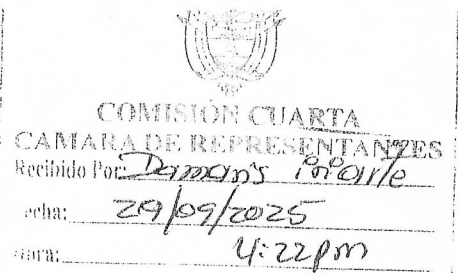 COMISIÓN CUARTA
CAMARA DE REPRESENTANTES
Recibido Por: Damaris Iriarte
echa: 29/09/2025
ora: 4:22pm